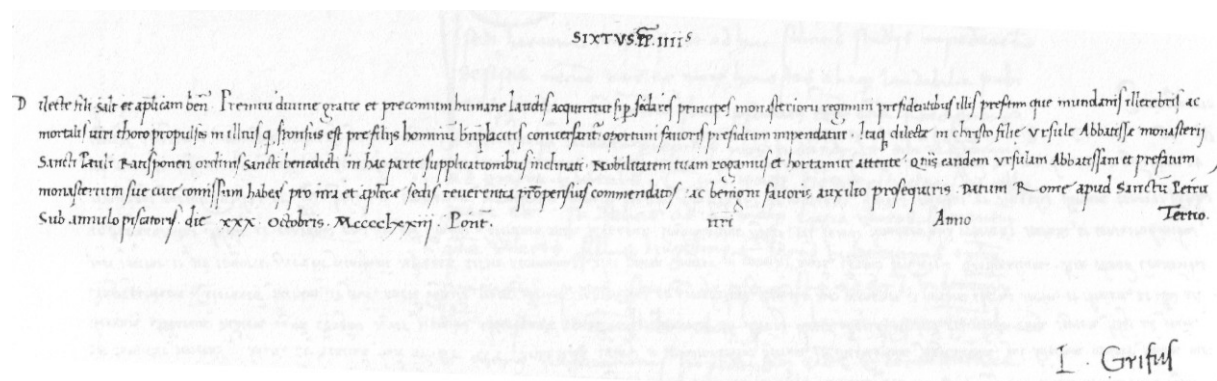 SIXTVS PP. IIIIˢ
Dilecte fili salt et aplicam ben̄. Premiū divine gratie et preconium humane laudis acquiritur si p̱ seculares principes monasteriorū regimini presidentibus illis presertim que mundanis illecebris ac
mortalis viri thoro propulsis in illius q. spōsus est pre filijs hominū bn̄placitis conversant̄ oportuni favoris presidium impendatur. Itaq dilecte in christo filie Ursule Abbatisse monasterij
Sancti Pauli Ratisponen̄ ordinis Sancti benedicti in hac parte supplicationibus inclinati. Nobilitatem tuam rogamus et hortamur attente. Qtīs eandem Ursulam Abbatissam et prefatum
monasterium sue cure comissum habeas pro nrā et aplice sedis reverentia prōpensius commendatis ac benigni favoris auxilio prosequaris. Datum Rome apud Sanctū Petrū
Sub annulo piscatoris die XXX. Octobris. MCCCCLXXIIJ. Pont̄. nr̄i Anno Tertio.
L. Grifus